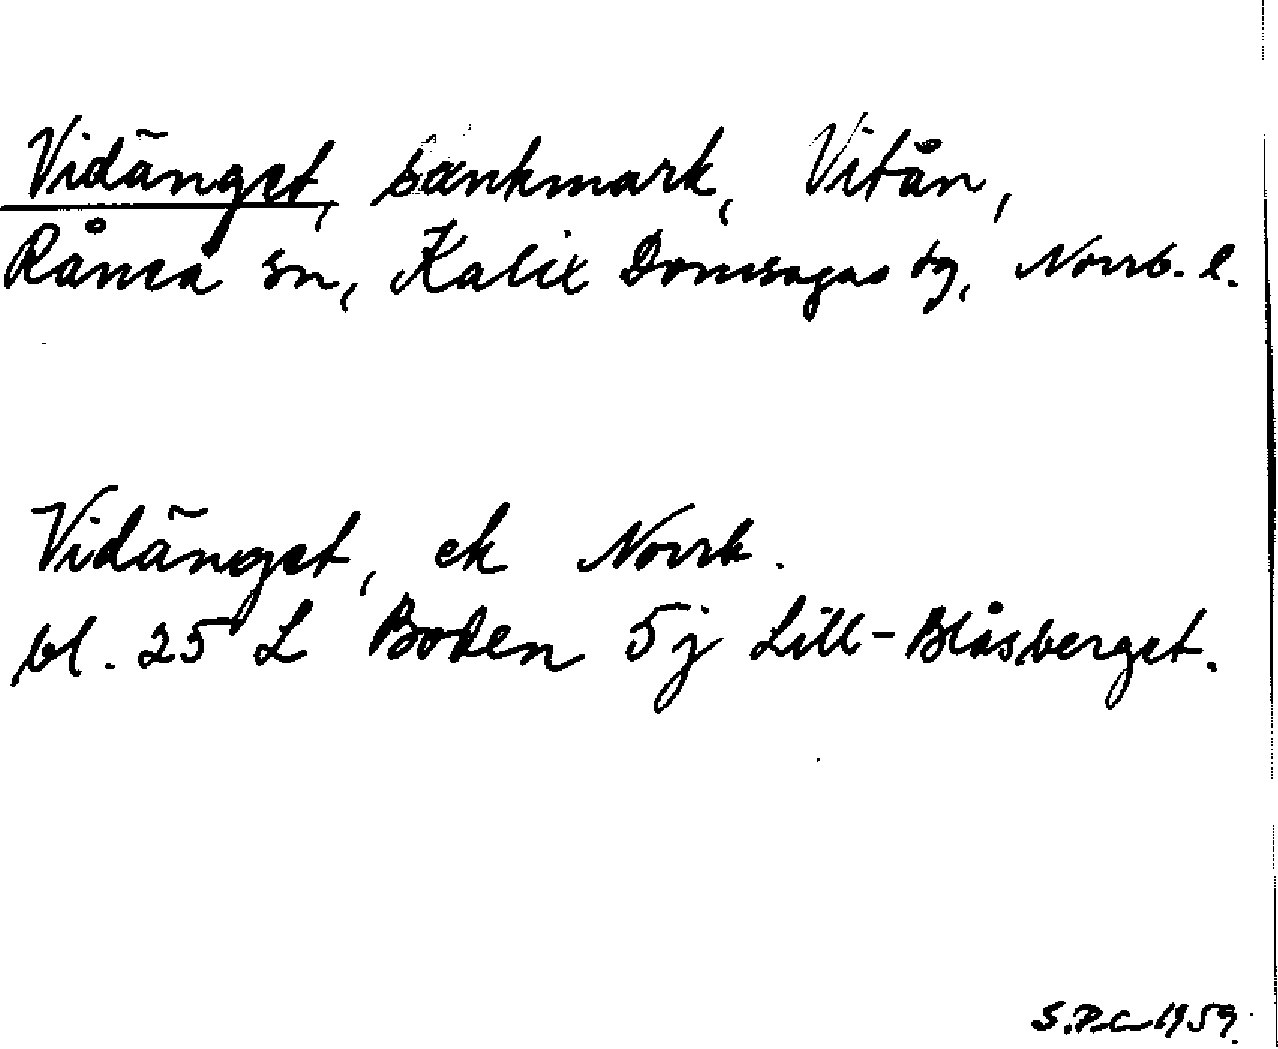 Vidänget, sankmark, Vitån,
Råneå sn, Kalix Domsagas tg, Norrb. l.
Vidänget, ek Norrb.
bl. 25 L Boden 5j Lill-Blåsberget.
1959.